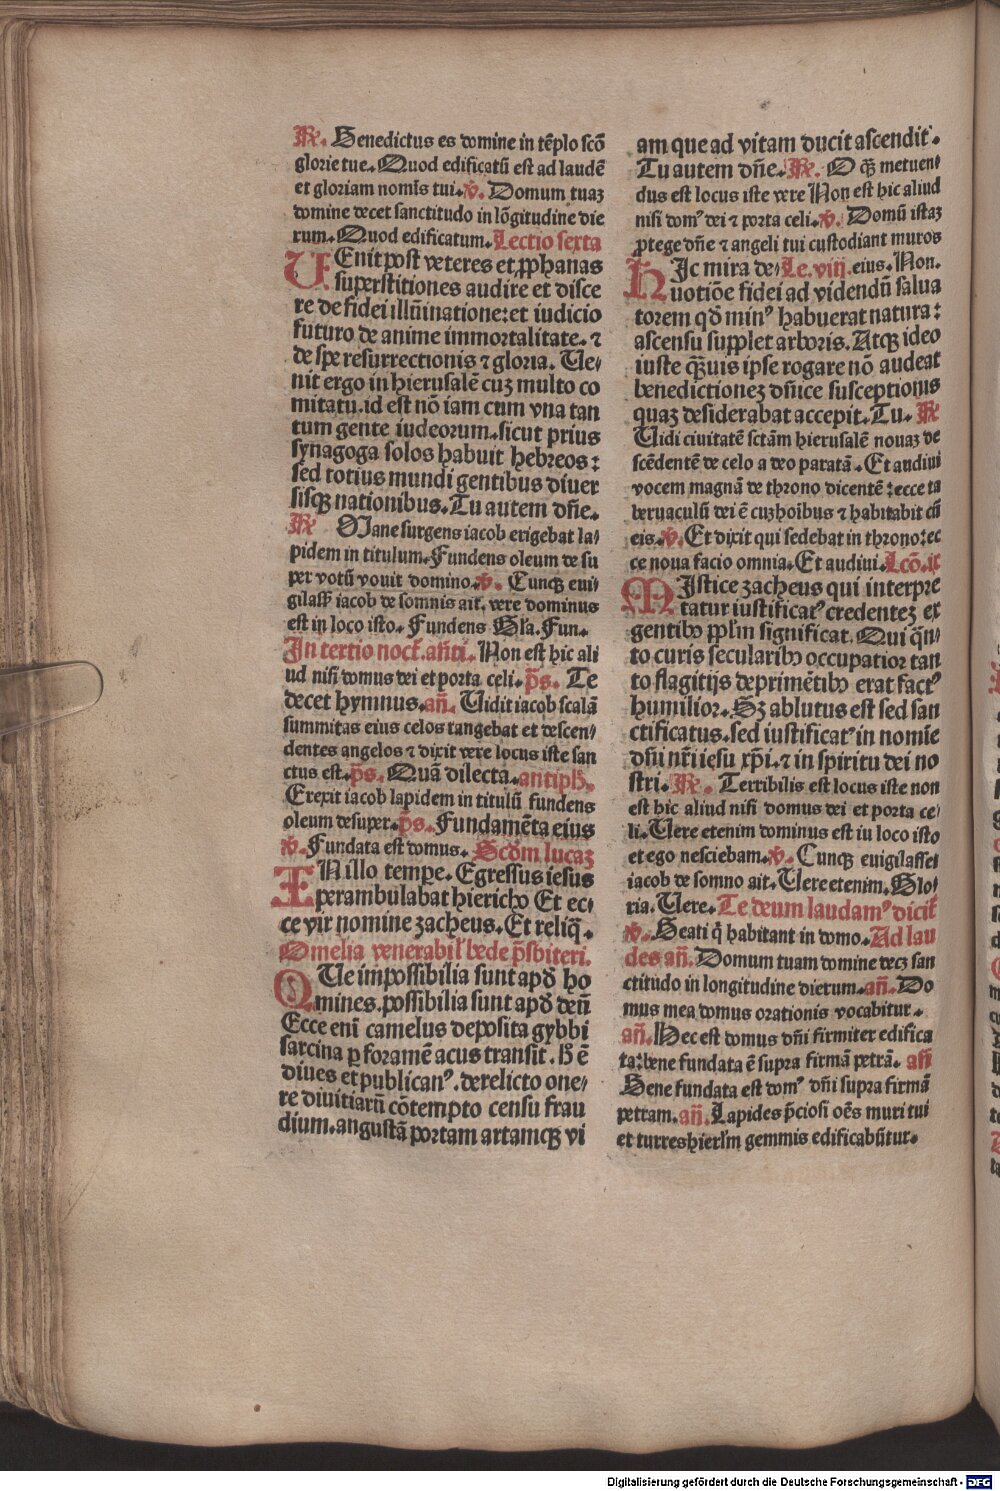 ℟. Benedictus es domine in tẽplo scõ
glorie tue. Quod edificatũ est ad laudẽ
et gloriam nomĩs tui. ℣. Domum tuaꝫ
domine decet sanctitudo in lõgitudine die
rum. Quod edificatum. Lectio sexta
VEnit post veteres et ꝓphanas
superstitiones audire et disce
re de fidei illũinatione: et iudicio
futuro de anime immortalitate. ⁊
de spe resurrectionis ⁊ gloria. Ve/
nit ergo in hierusalẽ cuꝫ multo co
mitatu. id est nõ iam cum vna tan
tum gente iudeorum. sicut prius
synagoga solos habuit hebreos:
sed totius mundi gentibus diuer
sisqꝫ nationibus. Tu autem dñe.
℟ Mane surgens iacob erigebat la/
pidem in titulum. Fundens oleum de su
per votũ vouit domino. ℣. Cunqꝫ eui/
gilass̃ iacob de somnis ait. vere dominus
est in loco isto. Fundens Gl̃a. Fun.
In tertio noct̃. añti. Non est hic ali
ud nisi domus dei et porta celi. p̃s. Te
decet hymnus. añ. Uidit iacob scalã
summitas eius celos tangebat et descen/
dentes angelos ⁊ dixit vere locus iste san
ctus est. p̃s. Quã dilecta. antiph̃.
Erexit iacob lapidem in titulũ fundens
oleum desuper. p̃s. Fundamẽta eius
℣. Fundata est domus. Scd̃m lucaꝫ
IN illo tempe. Egressus iesus
perambulabat hiericho Et ec/
ce vir nomine zacheus. Et reliq̃.
Omelia venerabil̃ bede p̃sbiteri.
QUe impossibilia sunt apd̃ ho
mines. possibilia sunt apd̃ deũ
Ecce eni camelus deposita gybbi
sarcina ꝑ foramẽ acus transit. H̃ ẽ
diues et publicanꝰ. derelicto one/
re diuitiarũ cõtempto censu frau
dium. angustã portam artamqꝫ vi
am que ad vitam ducit ascendit.
Tu autem dñe. ℟. O qꝫ̃ metuen/
dus est locus iste vere Non est hic aliud
nisi domꝰ dei ⁊ porta celi. ℣. Domũ istaꝫ
ꝓtege dñe ⁊ angeli tui custodiant muros
HIc mira de/ Le. viij. eius. Non.
uotiõe fidei ad videndũ salua
torem qd̃ minꝰ habuerat natura:
ascensu supplet arboris. Atqꝫ ideo
iuste qꝫ̃uis ipse rogare nõ audeat
benedictioneꝫ dñice susceptionis
quaꝫ desiderabat accepit. Tu. ℟
Uidi ciuitatẽ sctãm hierusalẽ nouaꝫ de
scẽdentẽ de celo a deo paratã. Et audiui
vocem magnã de throno dicentẽ: ecce ta
beruaculũ dei ẽ cuꝫ hoibus ⁊ habitabit cũ
eis. ℣. Et dixit qui sedebat in throno: ec
ce noua facio omnia. Et audiui. Lcõ. ix
MIstice zacheus qui interpre
tatur iustificatꝰ credenteꝫ ex
gentibꝰ pplm̃ significat. Qui q̃n/
to curis secularibꝰ occupatior tan
to flagitijs deprimẽtibꝰ erat factꝰ
humilior. Sꝫ ablutus est sed san
ctificatus. sed iustificatꝰ in nomie
dñi nr̃i iesu xp̃i. ⁊ in spiritu dei no
stri. ℟. Terribilis est locus iste non
est hic aliud nisi domus dei et porta ce/
li. Uere etenim dominus est iu loco isto
et ego nesciebam. ℣. Cunqꝫ euigilasset
iacob de somno ait. Uere etenim. Glo/
ria. Uere. Te deum laudamꝰ dicit̃
℣. Beati q̃ habitant in domo. Ad lau
des añ. Domum tuam domine decꝫ san
ctitudo in longitudine dierum. añ. Do
mus mea domus orationis vocabitur.
añ. Hec est domus dñi firmiter edifica
ta: bene fundata ẽ supra firmã petrã. añ
Bene fundata est domꝰ dñi supra firmã
petram. añ. Lapides p̃ciosi oẽs muri tui
et turres hierl̃m gemmis edificabũtur.
Digitalisierung gefördert durch die Deutsche Forschungsgemeinschaft - DFG